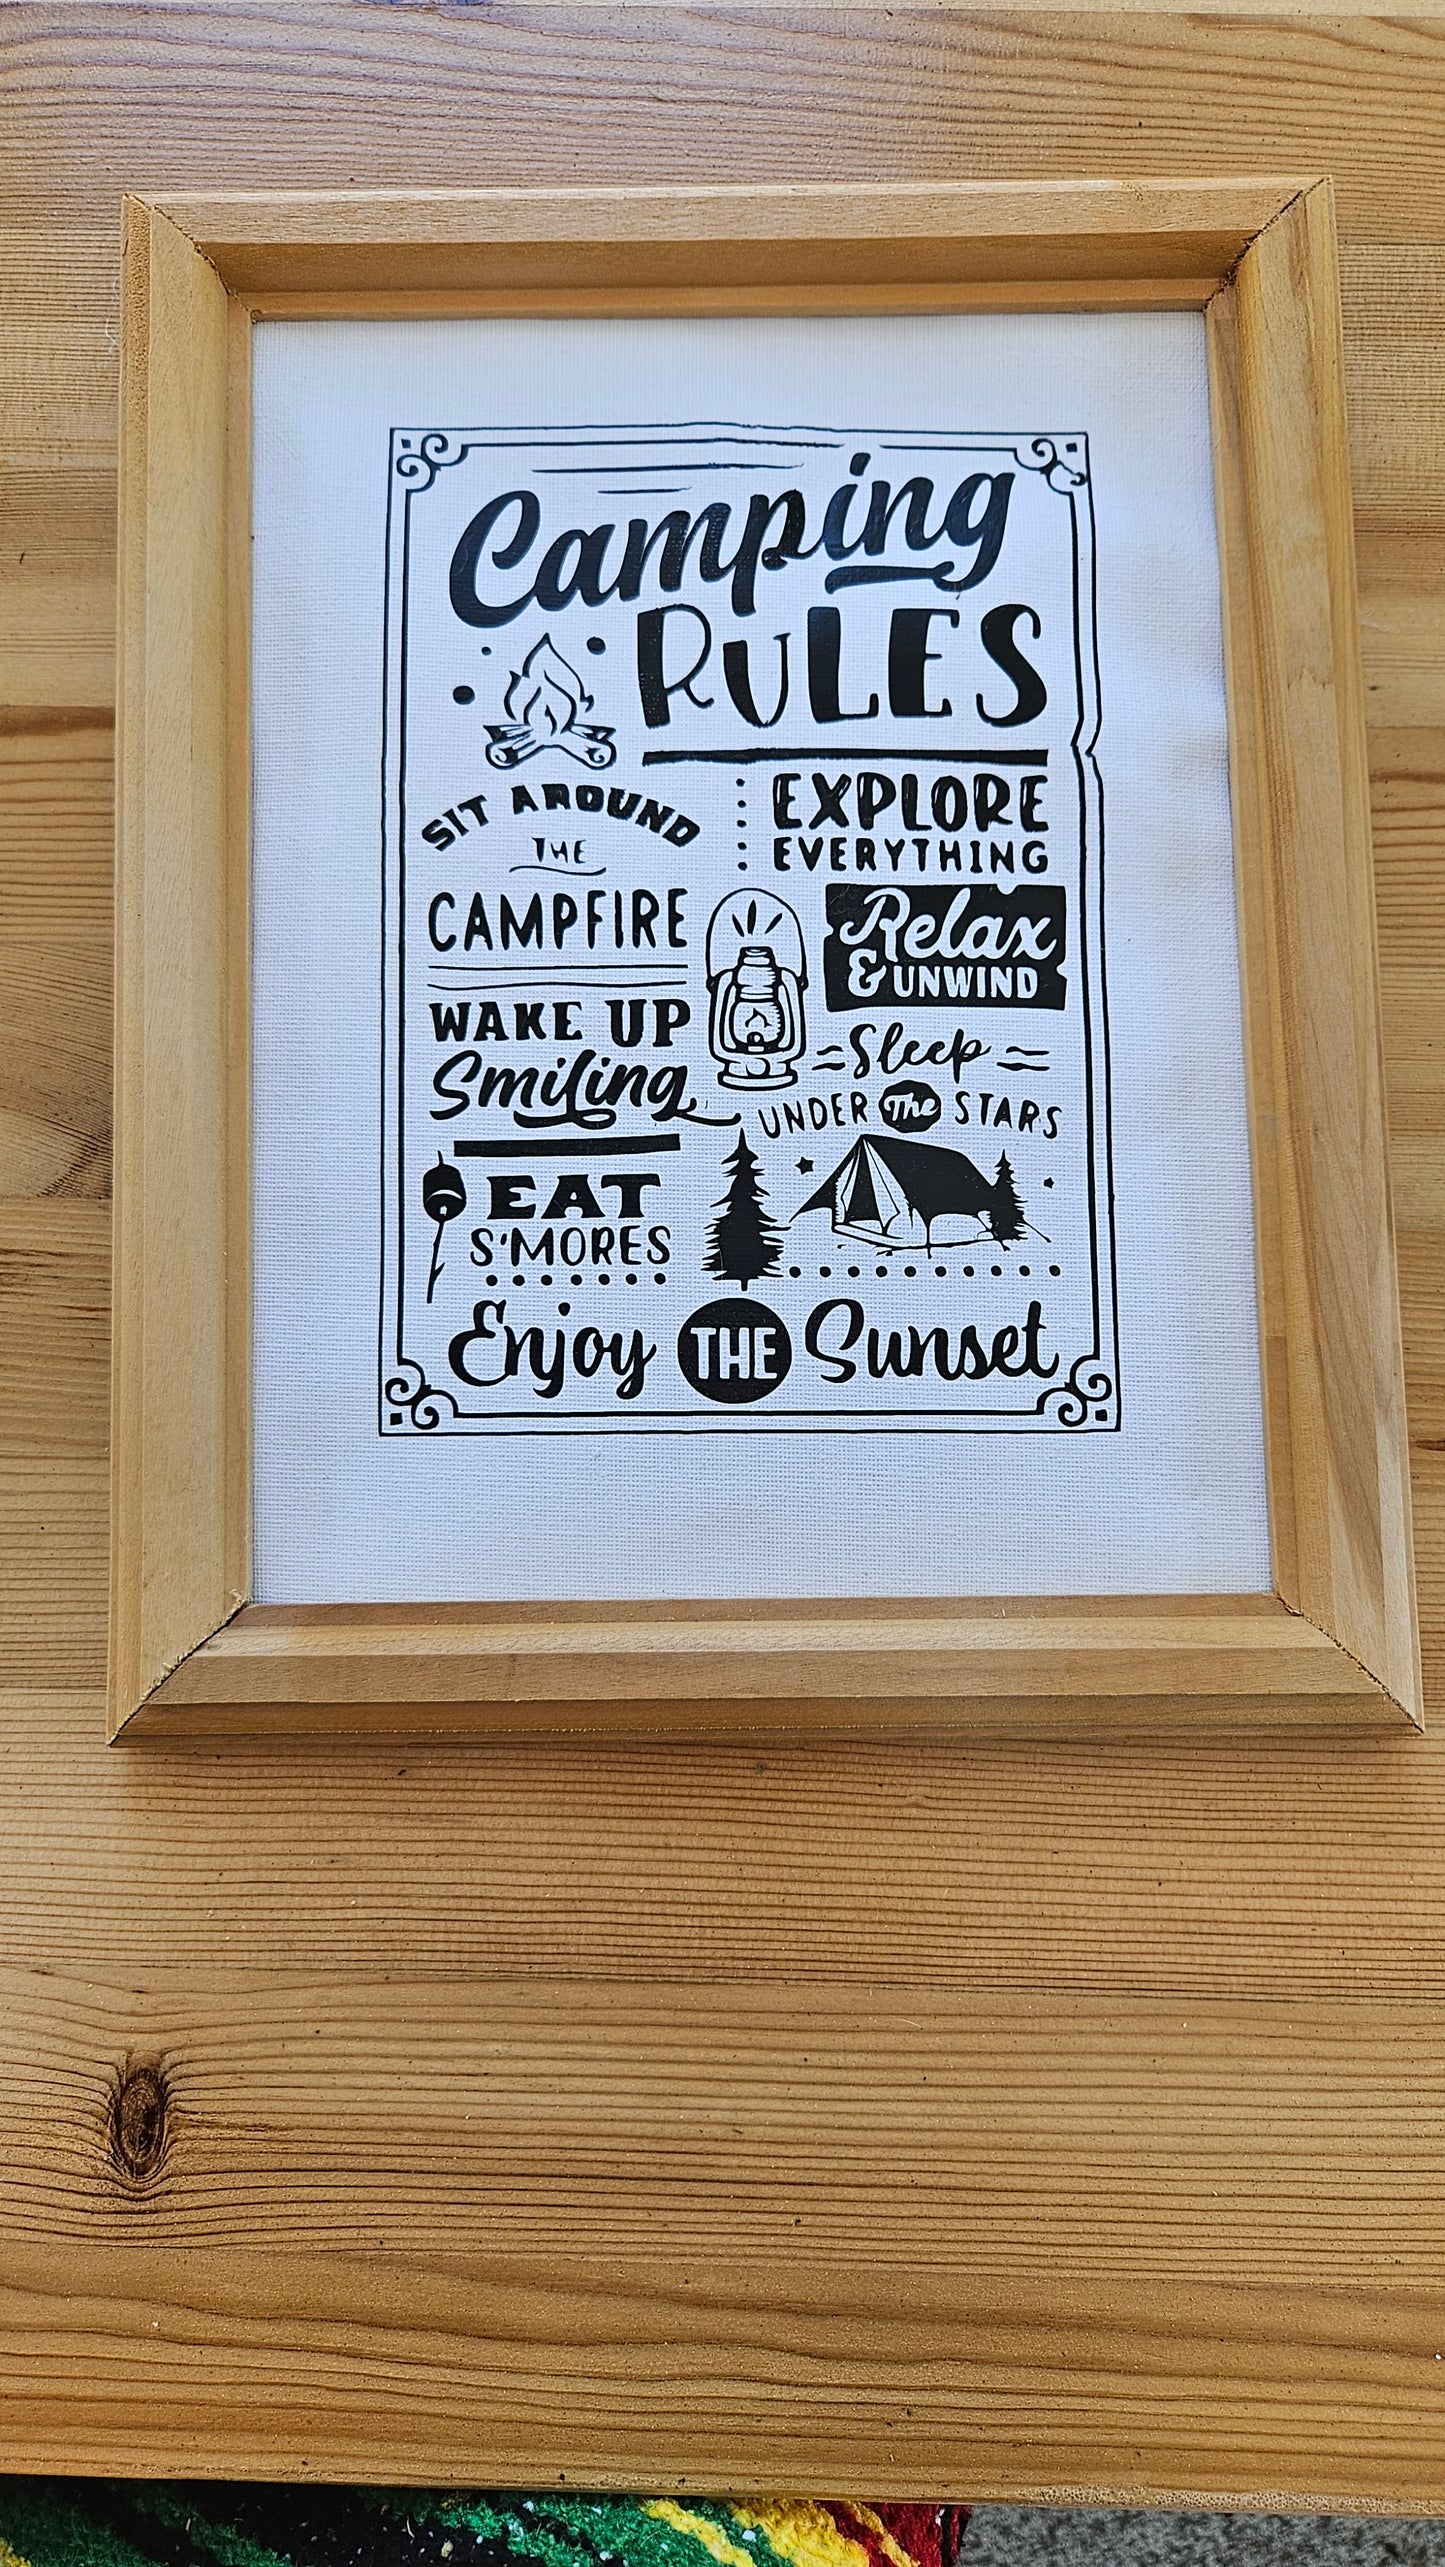 Camping
RULES
SIT AROUND
THE
CAMPFIRE
WAKE UP
Smiling
EAT
S'MORES
EXPLORE
EVERYTHING
Relax
& UNWIND
Sleep
UNDER The STARS
Enjoy THE Sunset